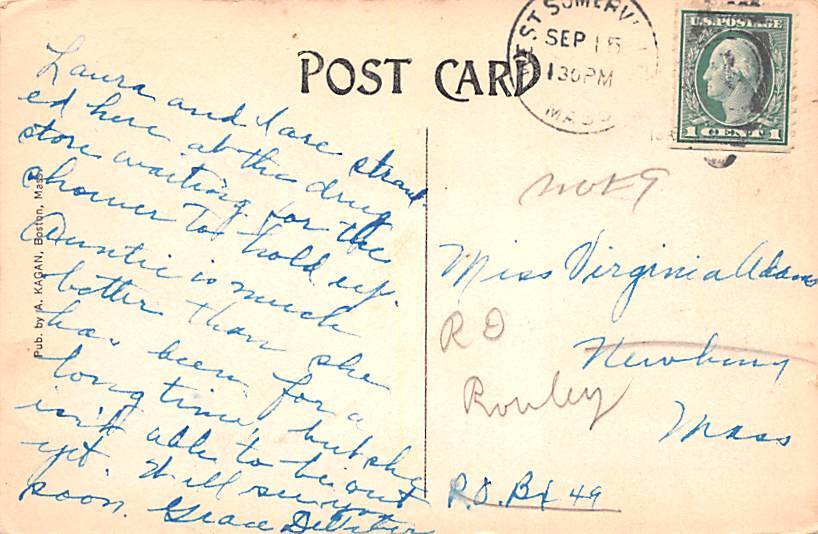 POST CARD
WEST SOMERVILLE
SEP 15
130PM
MASS
U.S. POSTAGE
1 CENT 1
Laura and I are strand-
ed here at the drug
store waiting for the
shower to hold up.
Auntie is much
better than she
has been for a
long time, but she
isn't able to be out
yet. Will see you
soon. Grace
Pub. by A. KAGAN, Boston, Mass.
Miss Virginia Adams
RD
Newbury
Rowley
Mass
R.D. Bx 49